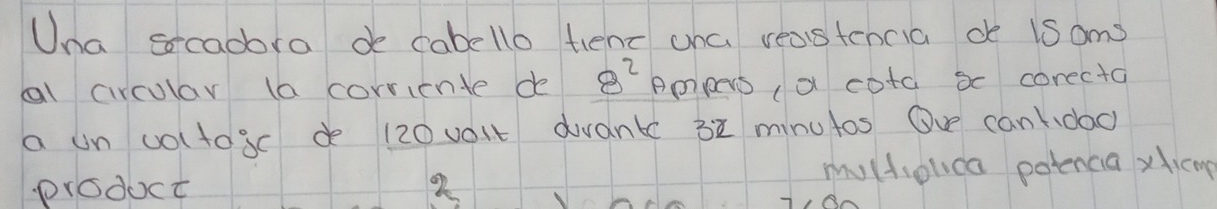 Una secadora de cabello tiene una resistencia de 15 oms
al circular la corriente de 8² Ampers, a cota se conecta
a un voltage de 120 volt durante 32 minutos Que cantidad
product multiplica potencia x
2